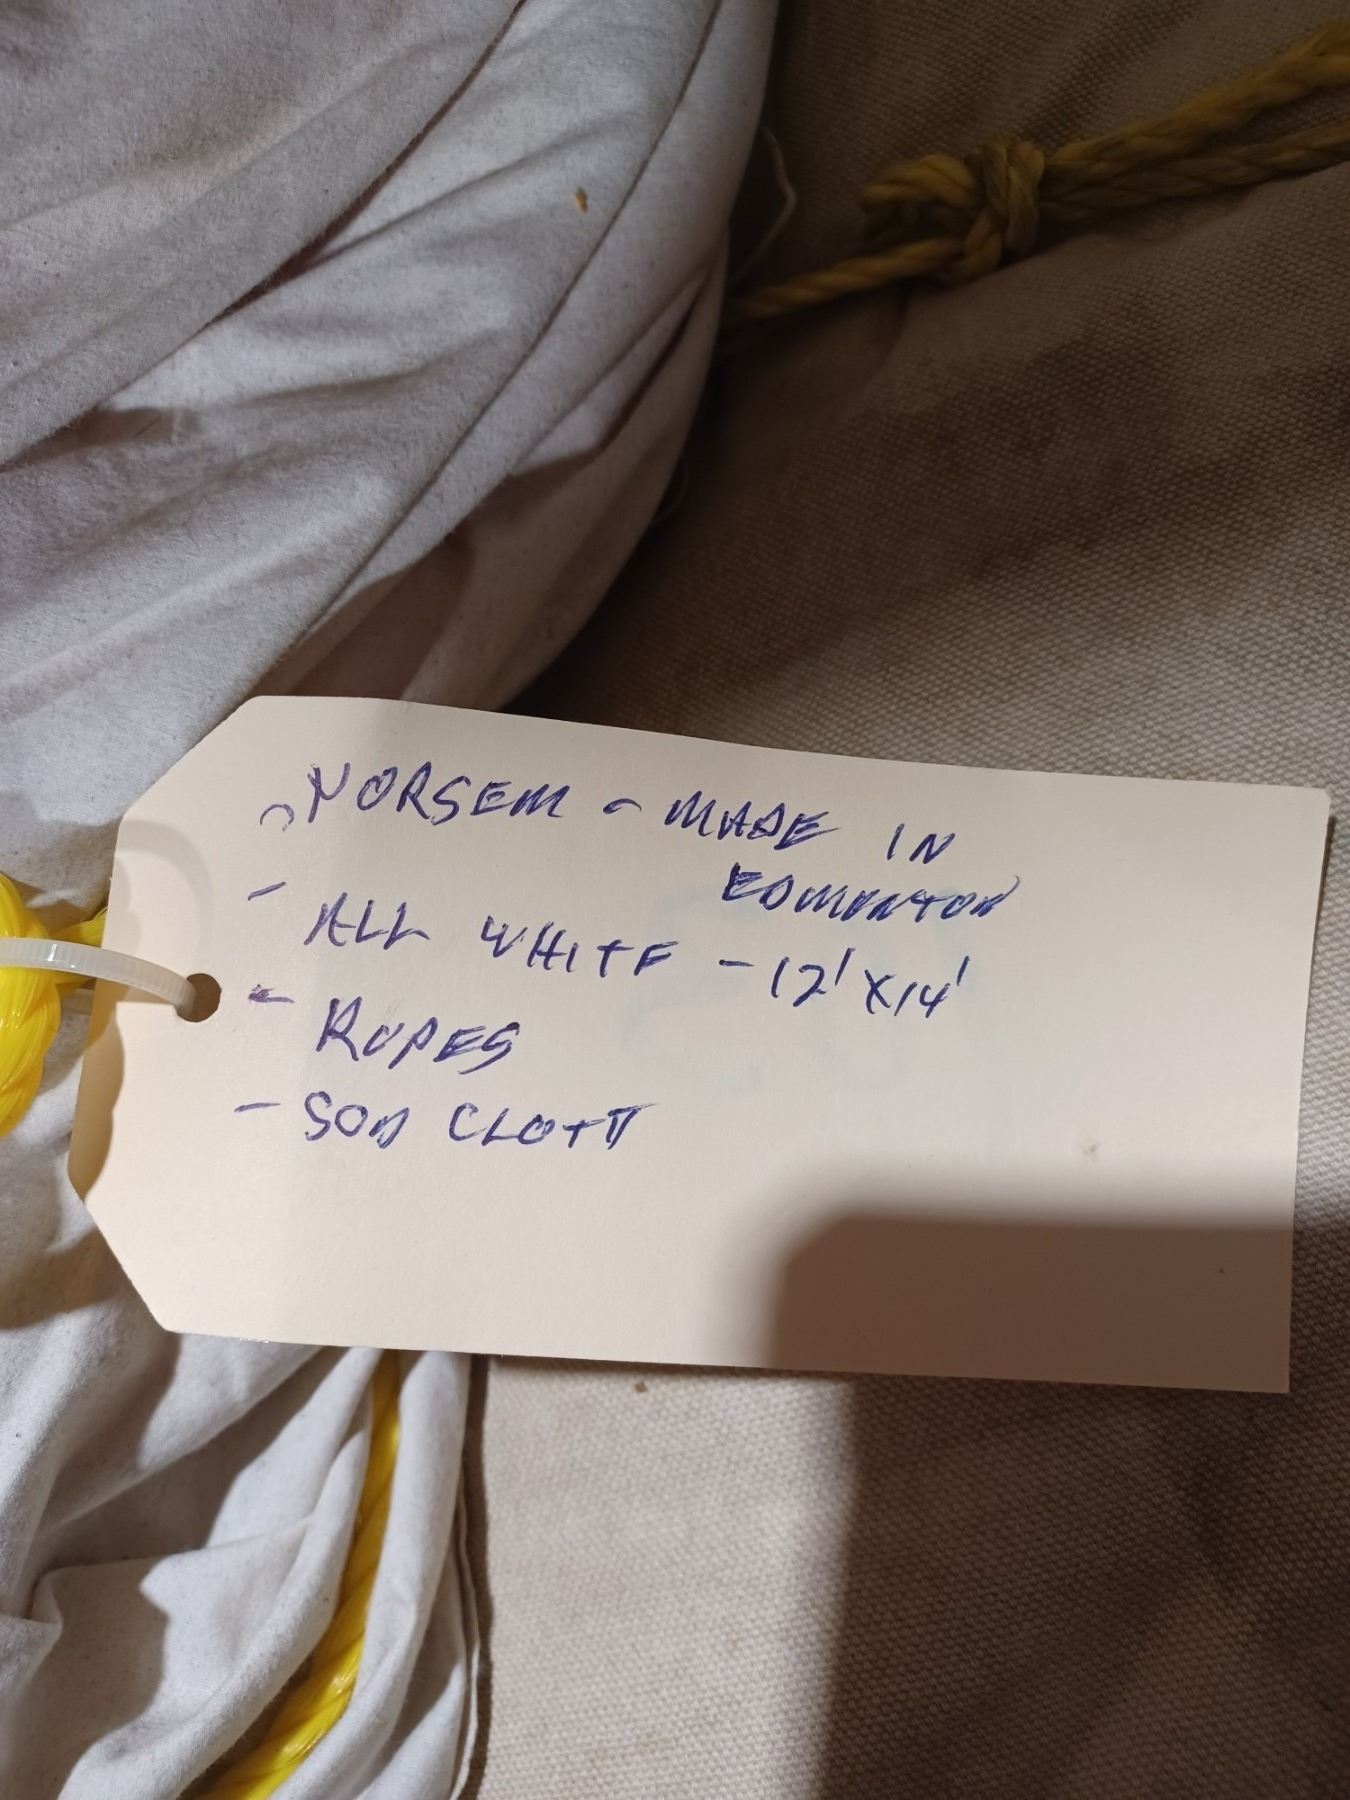 - NORSEM - MADE IN
EDMONTON
- ALL WHITE - 12' X 14'
- ROPES
- SOD CLOTH